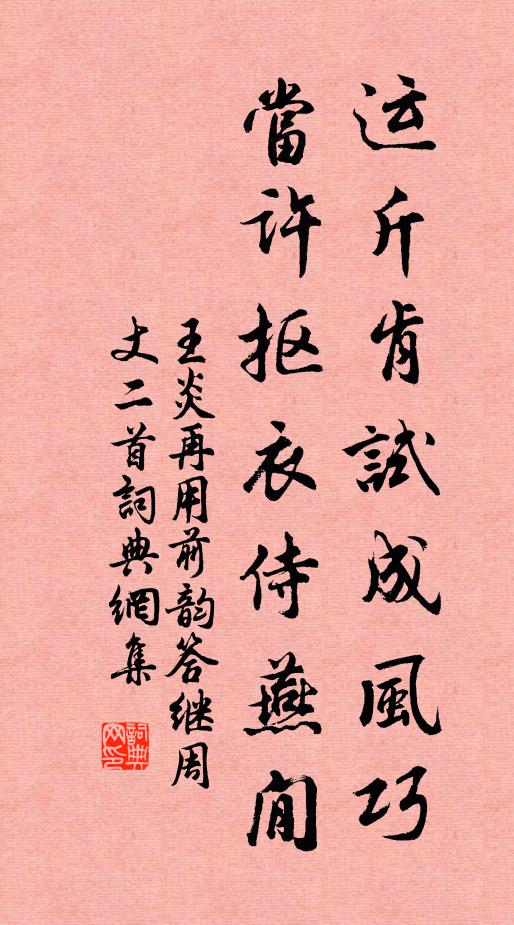 运斤肯試成風巧
當许抠衣侍燕閒
王炎再用前韵答继周
丈二首詞典網集
詞典网印